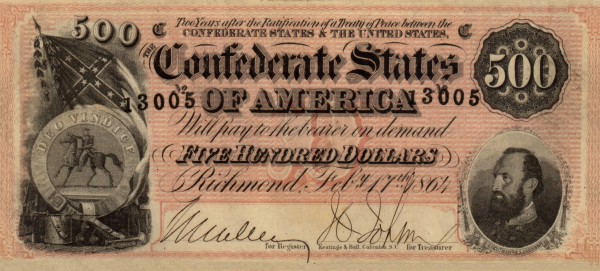 500
Two Years after the Ratification of a Treaty of Peace between the
C CONFEDERATE STATES & THE UNITED STATES, C
THE
Confederate States
500
13005 13005
OF AMERICA
Will pay to the bearer on demand
DEO VINDICE
FIVE HUNDRED DOLLARS
Richmond, Feby. 17th 1864
for Register Keatinge & Ball, Columbia, S.C. for Treasurer